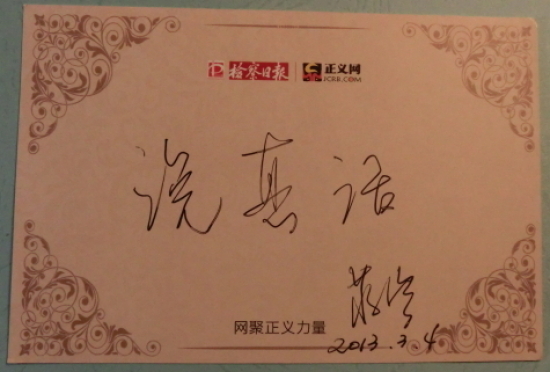 检察日报 正义网
JCRB.COM
说真话
网聚正义力量
2013.3.4